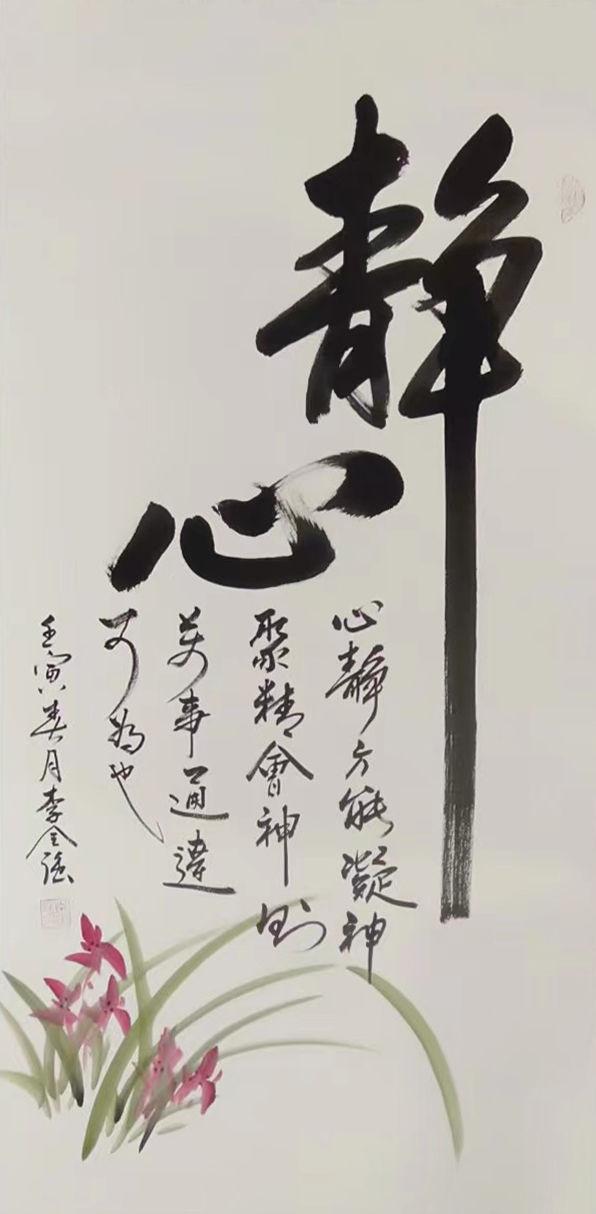 静心
心静方能凝神
聚精會神则
萬事通達
可為也
壬寅春月李全强